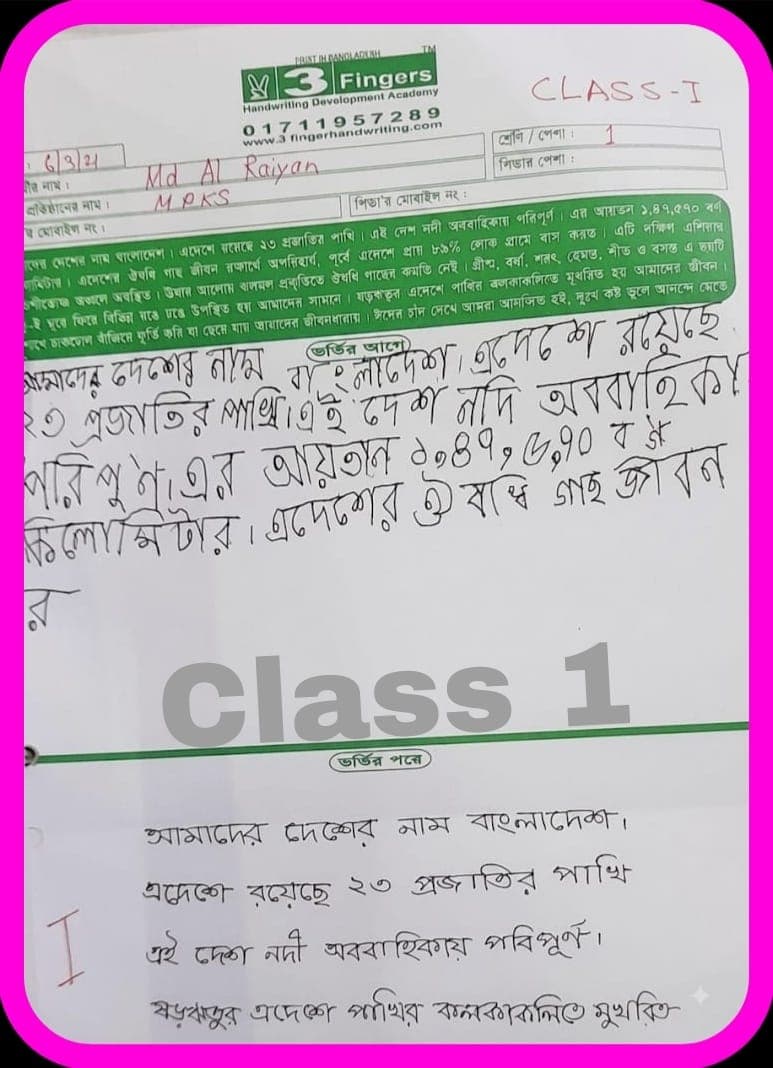 PRINT IN BANGLADESH
TM
3 Fingers
Handwriting Development Academy
01711957289
www.3 fingerhandwriting.com
CLASS-I
: 6/3/21
শ্রেণি / পেশা : 1
নাম : Md Al Raiyan
পিতার পেশা :
প্রতিষ্ঠানের নাম : MPKS
মোবাইল নং :
পিতা'র মোবাইল নং :
দেশের নাম বাংলাদেশ। এদেশে রয়েছে ২৩ প্রজাতির পাখি। এই দেশ নদী অববাহিকায় পরিপূর্ণ। এর আয়তন ১,৪৭,৫৭০ বর্গ
এদেশের ঔষধি গাছ জীবন রক্ষার্থে অপরিহার্য, পূর্বে এদেশে প্রায় ৮৬% লোক গ্রামে বাস করত। এটি দক্ষিণ এশিয়ার
অঞ্চলে অবস্থিত। উষার আলোয় ঝলমল প্রকৃতিতে ঔষধি গাছের কমতি নেই। গ্রীষ্ম, বর্ষা, শরৎ, হেমন্ত, শীত ও বসন্ত এ ছয়টি
ঘুরে ফিরে বিচিত্র সাজে উপস্থিত হয় আমাদের সামনে। ষড়ঋতুর এদেশে পাখির কলকাকলিতে মুখরিত হয় আমাদের জীবন।
ঢাকঢোল বাজিয়ে ফুর্তি করি যা ছেয়ে যায় আমাদের জীবনধারায়। ঈদের চাঁদ দেখে আমরা আনন্দিত হই, দুঃখ কষ্ট ভুলে আনন্দে মেতে
ভর্তির আগে
আমাদের দেশের নাম বাংলাদেশ। এদেশে রয়েছে
২৩ প্রজাতির পাখি। এই দেশ নদি অববাহিকা
পরিপুর্ণ। এর আয়তান ১,৪৭,৫,৭০ বর্গ
কিলোমিটার। এদেশের ঔষধি গাছ জীবন
র
Class 1
ভর্তির পরে
আমাদের দেশের নাম বাংলাদেশ।
এদেশে রয়েছে ২৩ প্রজাতির পাখি
এই দেশ নদী অববাহিকায় পরিপূর্ণ।
I
ষড়ঋতুর এদেশে পাখির কলকাকলিতে মুখরিত